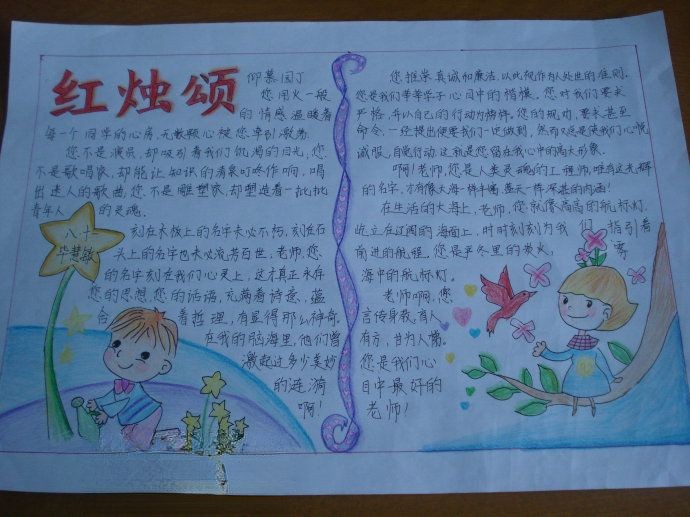 红烛颂
仰慕园丁
您用火一般
的情感温暖着
每一个同学的心房,无数颗心被您牵引激荡
您不是演员,却吸引着我们饥渴的目光,您
不是歌唱家,却能让知识的清泉叮咚作响,唱
出迷人的歌曲,您不是雕塑家,却塑造着一批批
青年人的灵魂。
八十
毕慧敏
刻在木板上的名字未必不朽,刻在石
头上的名字也未必流芳百世。老师,您
的名字刻在我们心灵上,这才真正永存
您的思想,您的话语,充满着诗意,蕴
含着哲理,有显得那么神奇。
在我的脑海里,他们曾
激起过多少美妙
的涟漪
啊!
您推崇真诚和廉洁,以此视作为人处世的准则。
您是我们莘莘学子心目中的楷模。您对我们要求
严格,并以自己的行动为榜样。您的规劝,要求甚至
命令,一经提出便要我们一定做到,然而又总是使我们心悦
诚服,自觉行动,这就是您留在我心中的高大形象。
啊!老师,您是人类灵魂的工程师,唯有这光辉
的名字,才有像大海一样丰富,蓝天一样深湛的内涵!
在生活的大海上,老师,您就像高高的航标灯,
屹立在辽阔的海面上,时时刻刻为我们指引着
前进的航程。您是严冬里的炭火,雾
海中的航标灯。
老师啊,您
言传身教,育人
有方,甘为人梯。
您是我们心
目中最好的
老师!